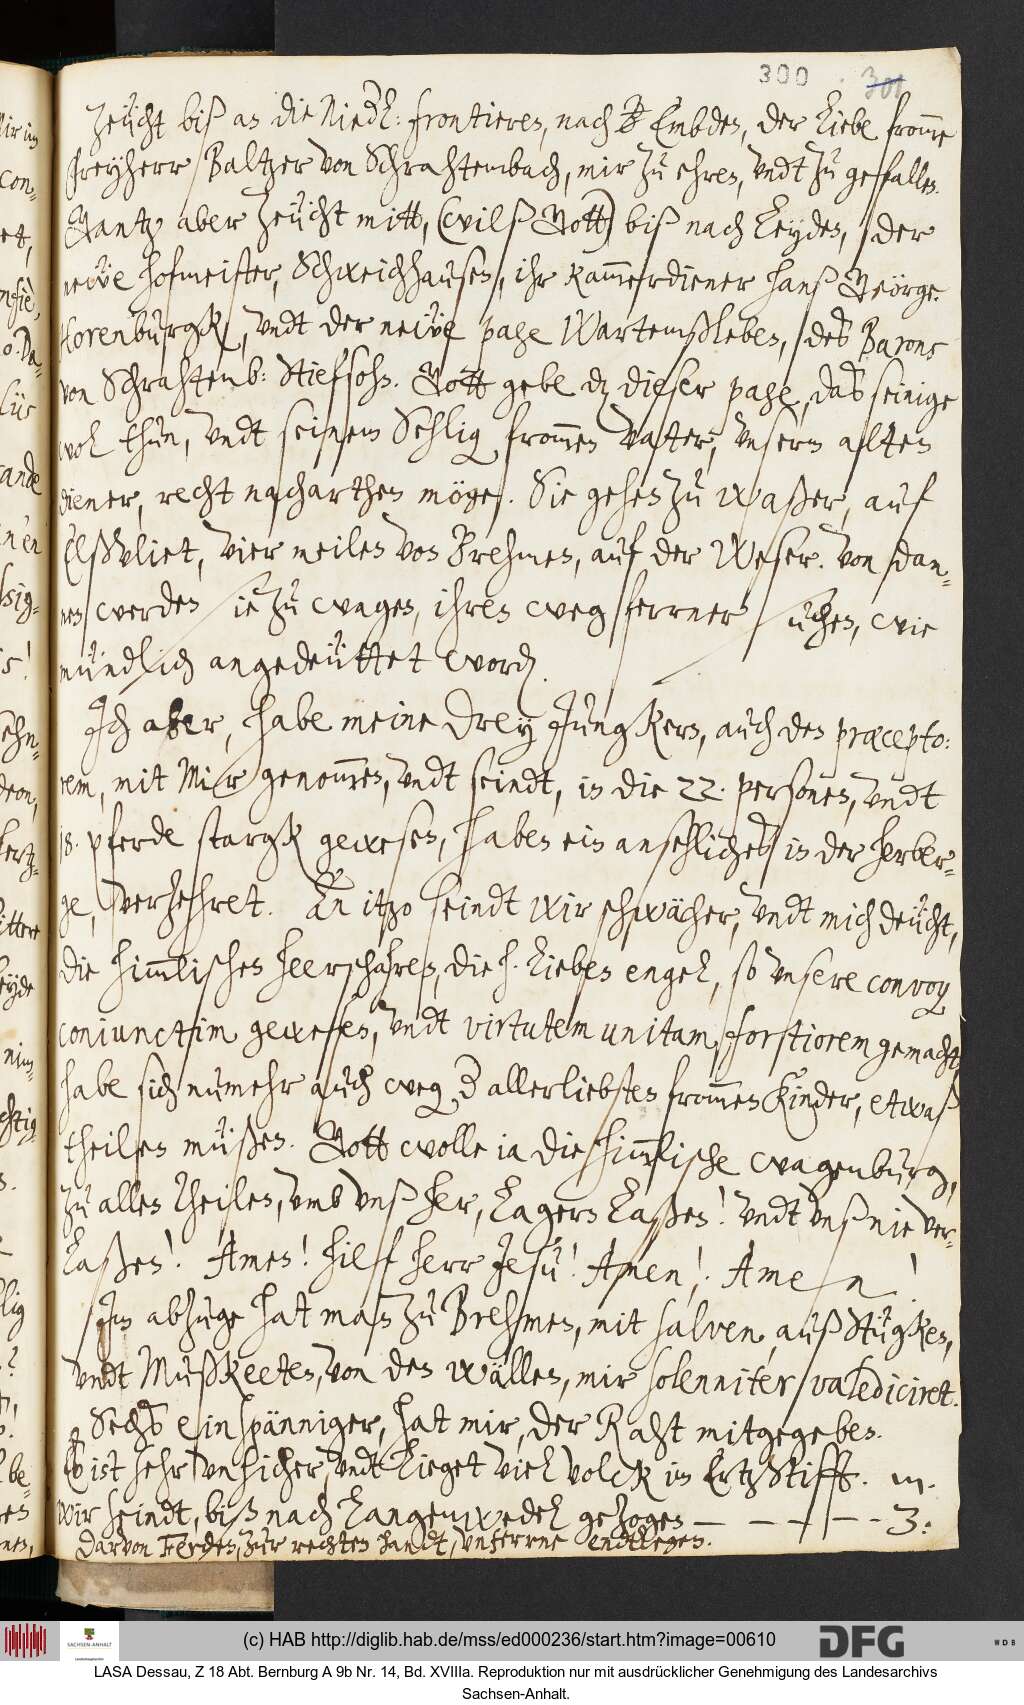 300 301
Zeücht biß an die Niedl: frontieren, nach Embden, der Liebe fromme
Freyherr Baltzer von Schrahtembach, mir zu ehren, undt zu gefallen.
Gantz aber zeücht mitt, (wils Gott) biß nach Leyden, der
neüe hofmeister, Schweichhausen, ihr kammerdiener Hanß Geörge
Horenburgk, undt der neüe page Wartemßleben, des Barons
von Schrahtenb: Stiefsohn. Gott gebe dz dieser page, das seinige
wol thun, undt seinem Sehlig frommen Vatter, unserm alten
diener, recht nacharthen möge. Sie gehen zu waßer, auf
Elßvliet, vier meilen von Brehmen, auf der Weser. Von dan-
nen werden sie zu wagen, ihren weg ferrner suchen, wie
mündlich angedeüttet word.
Ich aber, habe meine drey Jungkern, auch den præcepto-
rem, mit Mir genommen, undt seindt, in die 22. personen, undt
18. pferde stargk gewesen, haben ein ansehliches in der herber-
ge, verzehret. An itzo seindt wir schwächer, undt mich deücht,
die himmlischen Heerschahren, die h. Lieben engel, so unsere convoy
coniunctim gewesen, undt virtutem unitam, forstiorem gemacht,
habe sich numehr auch weg allerliebsten frommen Kinder, etwaß
theilen müßen. Gott wolle ia die himmlische wagenburg,
zu allen theilen, umb unß her, Lagern Laßen! undt unß nie ver-
Laßen! Amen! hilf herr Jesu! Amen! Amen!
Im abzuge hat man zu Brehmen, mit salven, auß Stügken,
undt Mußkeeten, von den wällen, mir solenniter valediciret.
Sechs einspänniger, hat mir, der Raht mitgegeben.
Es ist sehr unsicher, undt Lieget viel volck im Ertzstifft. m.
Wir seindt, biß nach Langenwedel gezogen — — — — — 3.
Darvon Ferden, zur rechten handt, unferrne endtlegen.
(c) HAB http://diglib.hab.de/mss/ed000236/start.htm?image=00610
SACHSEN-ANHALT
DFG
WDB
LASA Dessau, Z 18 Abt. Bernburg A 9b Nr. 14, Bd. XVIIIa. Reproduktion nur mit ausdrücklicher Genehmigung des Landesarchivs
Sachsen-Anhalt.